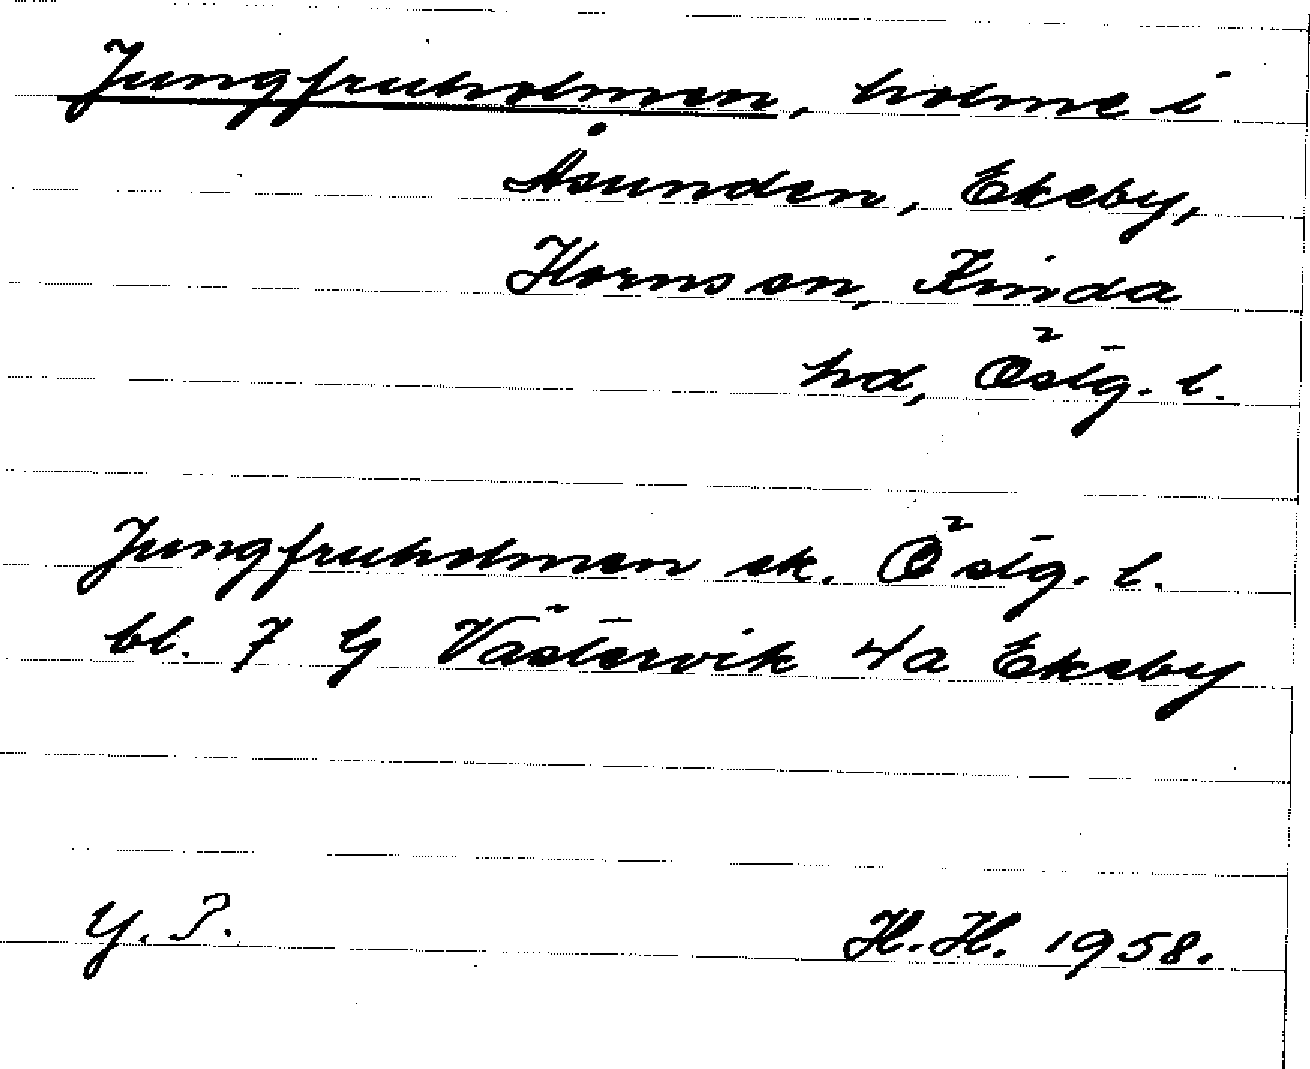 Jungfruholmen, holme i
Åsunden, Ekeby,
Horns sn, Kinda
hd, Östg. l.
Jungfruholmen ek. Östg. l.
bl. 7 G Västervik 4a Ekeby
Y. P.
H.H. 1958.